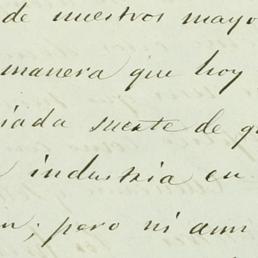 de nuestros mayo
manera que hoy
iada suerte de q
industria en
n; pero ni aun